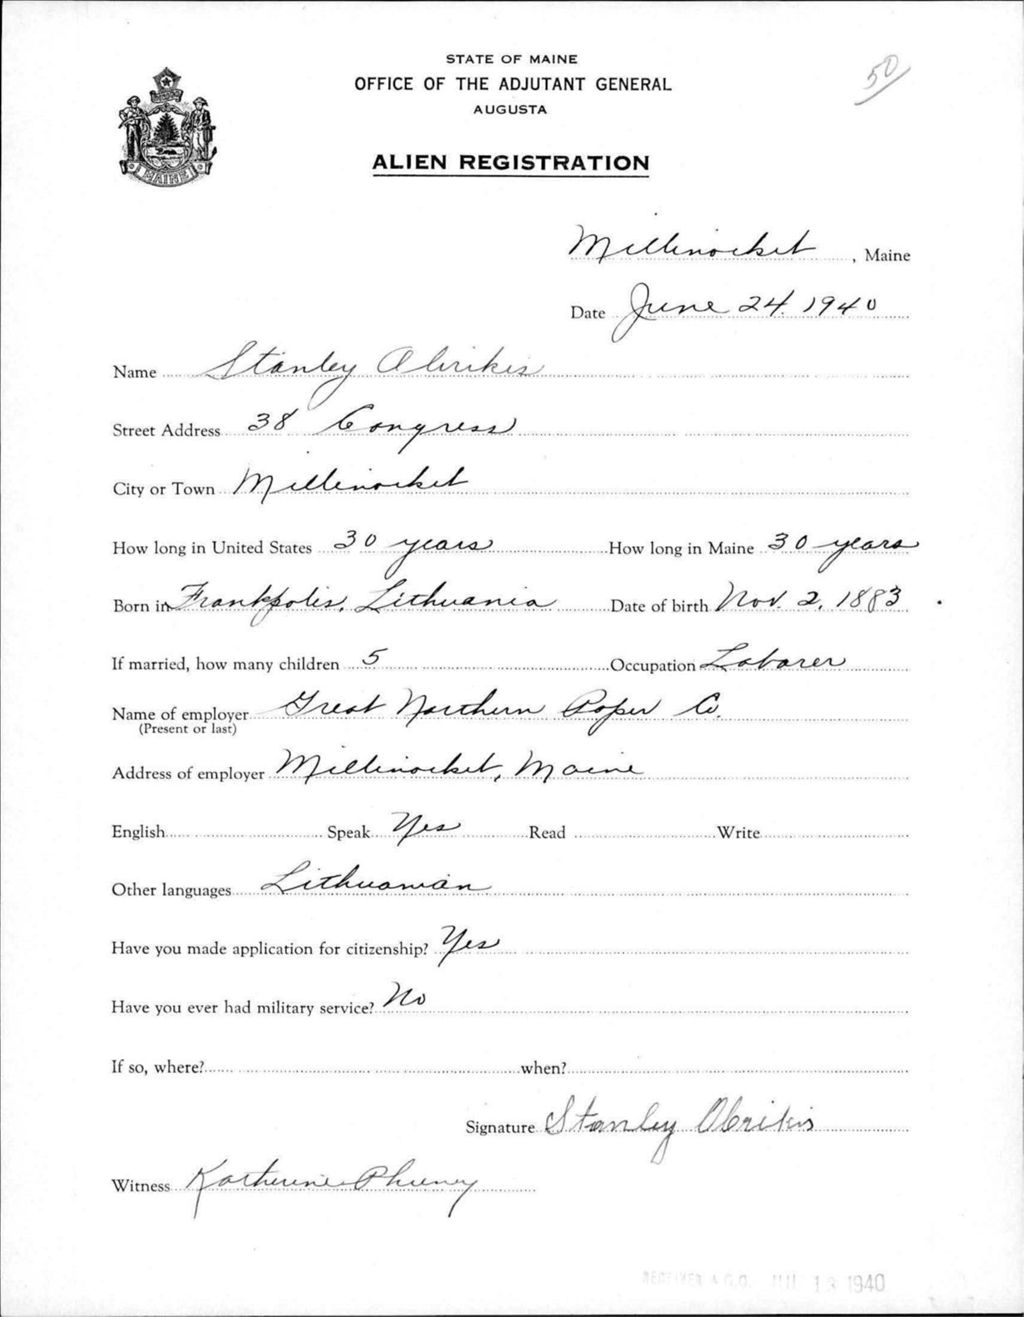 STATE OF MAINE
OFFICE OF THE ADJUTANT GENERAL
AUGUSTA
50
ALIEN REGISTRATION
MAINE
Millinocket, Maine
Date June 24. 1940
Name Stanley Obrikis
Street Address 38 Congress
City or Town Millinocket
How long in United States 30 years How long in Maine 30 years
Born in Frankpolis, Lithuania Date of birth Nov. 2, 1883
If married, how many children 5 Occupation Laborer
Name of employer Great Northern Paper Co.
(Present or last)
Address of employer Millinocket, Maine
English Speak Yes Read Write
Other languages Lithuanian
Have you made application for citizenship? Yes
Have you ever had military service? No
If so, where? when?
Signature Stanley Obrikis
Witness Katherine
RECEIVED A.G.O. 13 1940